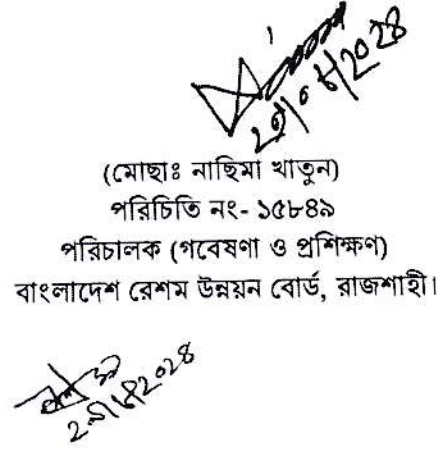 (মোছাঃ নাছিমা খাতুন)
পরিচিতি নং- ১৫৮৪৯
পরিচালক (গবেষণা ও প্রশিক্ষণ)
বাংলাদেশ রেশম উন্নয়ন বোর্ড, রাজশাহী।